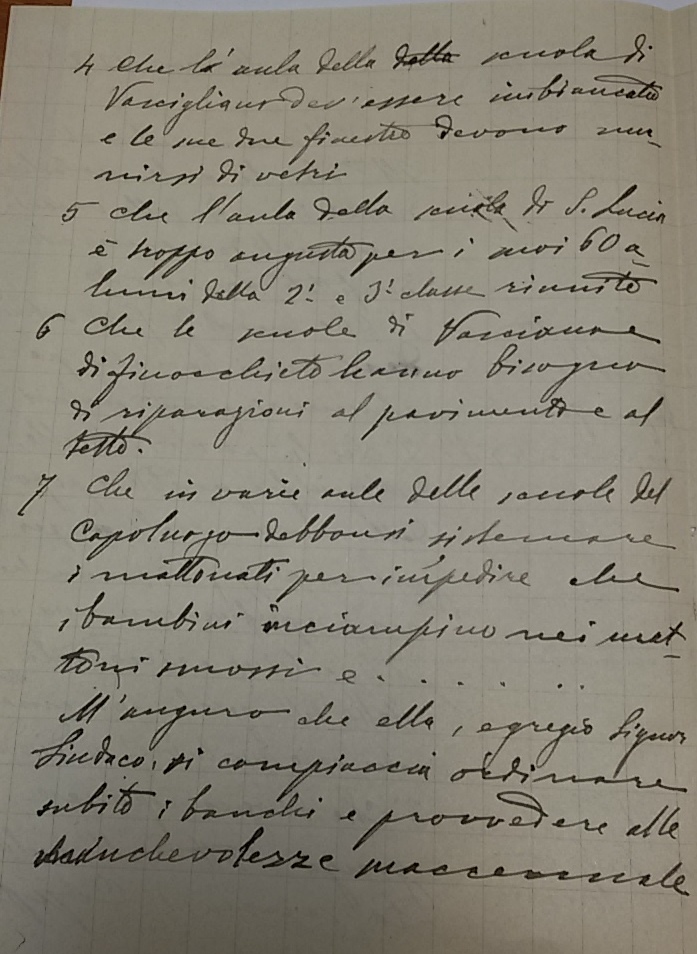 4 Che l'aula della della scuola di
Vascigliano dev'essere imbiancata
e le sue due finestre devono mu-
nirsi di vetri
5 Che l'aula della scuola di S. Lucia
è troppo angusta per i suoi 60 a-
lunni della 2ª e 3ª classe riunite
6 Che le scuole di Vasciano e
di Finocchieto hanno bisogno
di riparazioni al pavimento e al
tetto.
7 Che in varie aule delle scuole del
Capoluogo debbonsi sistemare
i mattonati per impedire che
i bambini inciampino nei mat-
toni smossi e . . . . . .
M'auguro che ella, egregio Signor
Sindaco, si compiaccia ordinare
subito i banchi e provvedere alle
manchevolezze